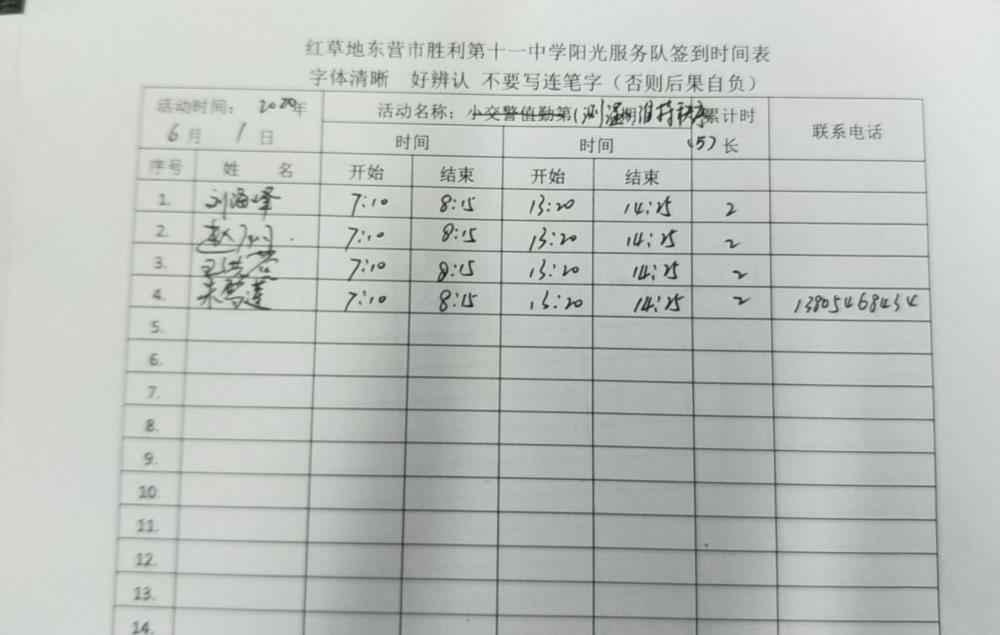 红草地东营市胜利第十一中学阳光服务队签到时间表
字体清晰 好辨认 不要写连笔字（否则后果自负）
活动时间： 2020年 6月 1日
活动名称：小交警值勤第（测温期维持秩序
累计时长
（5）
联系电话
时间 时间
序号 姓 名 开始 结束 开始 结束
1. 刘海峰 7:10 8:15 13:20 14:25 2
2. 赵 7:10 8:15 13:20 14:25 2
3. 王 7:10 8:15 13:20 14:25 2
4. 朱雪莲 7:10 8:15 13:20 14:25 2 13805468434
5.
6.
7.
8.
9.
10.
11.
12.
13.
14.